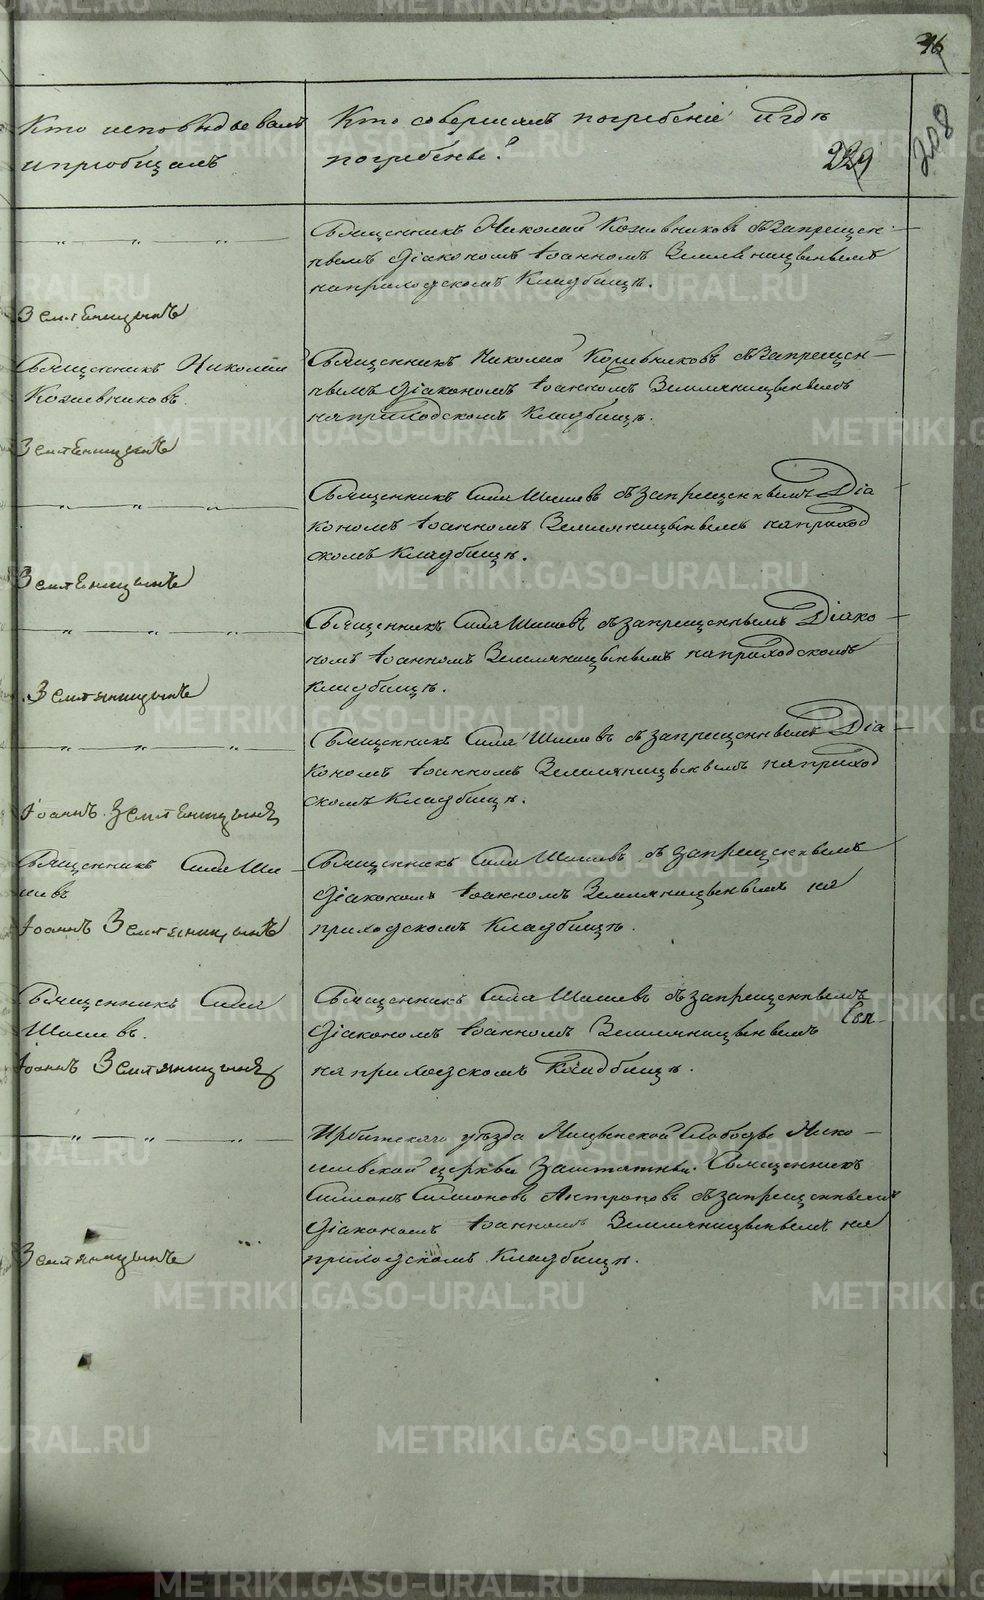 Кто исповѣдывалъ
и пріобщалъ
Кто совершалъ погребеніе и гдѣ
погребены?
229
208
Священникъ Николай Кожевниковъ съ запрещен-
нымъ діакономъ Іоанномъ Земляницынымъ
на приходскомъ кладбищѣ.
Земляницынъ
Священникъ Николай
Кожевниковъ.
Священникъ Николай Кожевниковъ съ запрещен-
нымъ діакономъ Іоанномъ Земляницынымъ
на приходскомъ кладбищѣ.
Земляницынъ
Священникъ Сила Шишевъ съ запрещеннымъ Діа
кономъ Іоанномъ Земляницынымъ на приход
скомъ кладбищѣ.
Земляницынъ
Священникъ Сила Шишевъ съ запрещеннымъ Діако
номъ Іоанномъ Земляницынымъ на приходскомъ
кладбищѣ.
Земляницынъ
Священникъ Сила Шишевъ съ запрещеннымъ Діа
кономъ Іоанномъ Земляницынымъ на приход
скомъ кладбищѣ.
Іоаннъ Земляницынъ
Священникъ Сила Ши
шевъ
Священникъ Сила Шишевъ съ запрещеннымъ
діакономъ Іоанномъ Земляницынымъ на
приходскомъ кладбищѣ.
Іоаннъ Земляницынъ
Священникъ Сила
Шишевъ.
Священникъ Сила Шишевъ съ запрещеннымъ
діакономъ Іоанномъ Земляницынымъ
на приходскомъ кладбищѣ.
Іоаннъ Земляницынъ
Ирбитскаго уѣзда Ницинской Слободы Нико-
лаевской церкви Заштатный Священникъ
Симеонъ Симеоновъ Антроповъ съ запрещеннымъ
діакономъ Іоанномъ Земляницынымъ на
приходскомъ кладбищѣ.
Земляницынъ
METRIKI.GASO-URAL.RU